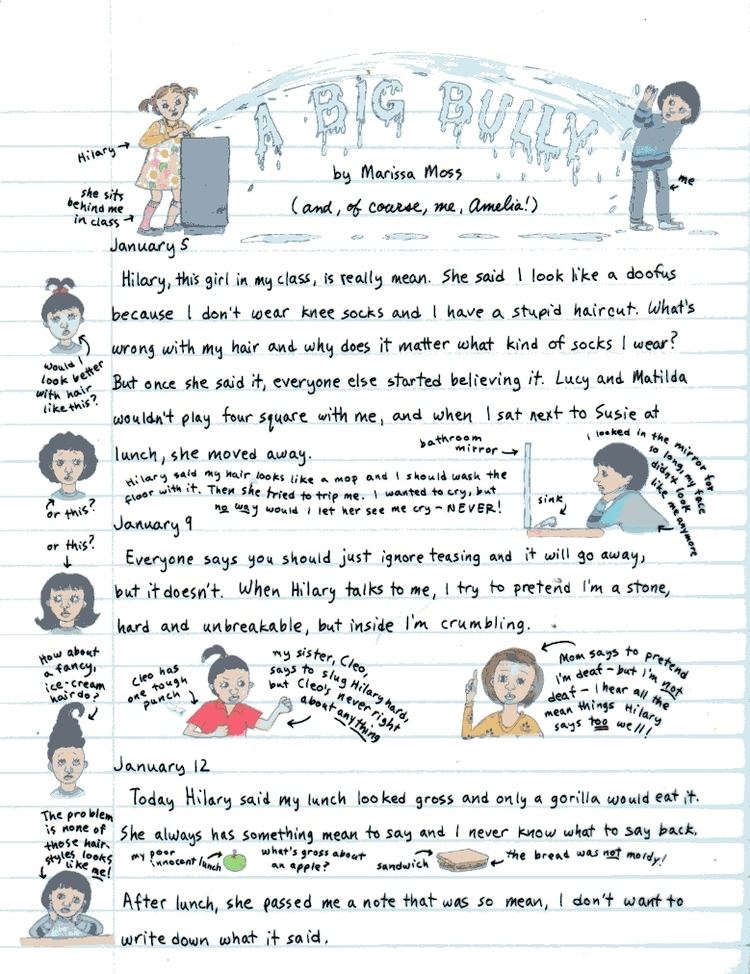 A BIG BULLY
by Marissa Moss
(and, of course, me, Amelia!)
Hilary
she sits
behind me
in class
me
January 5
Hilary, this girl in my class, is really mean. She said I look like a doofus
because I don't wear knee socks and I have a stupid haircut. What's
wrong with my hair and why does it matter what kind of socks I wear?
But once she said it, everyone else started believing it. Lucy and Matilda
wouldn't play four square with me, and when I sat next to Susie at
lunch, she moved away.
would I
look better
with hair
like this?
or this?
bathroom
mirror
sink
I looked in the mirror for
so long, my face
didn't look
like me anymore
Hilary said my hair looks like a mop and I should wash the
floor with it. Then she tried to trip me. I wanted to cry, but
no way would I let her see me cry - NEVER!
January 9
or this?
Everyone says you should just ignore teasing and it will go away,
but it doesn't. When Hilary talks to me, I try to pretend I'm a stone,
hard and unbreakable, but inside I'm crumbling.
How about
a fancy,
ice-cream
hairdo?
Cleo has
one tough
punch
my sister, Cleo,
says to slug Hilary hard,
but Cleo's never right
about anything
Mom says to pretend
I'm deaf - but I'm not
deaf - I hear all the
mean things Hilary
says too well!
January 12
Today Hilary said my lunch looked gross and only a gorilla would eat it.
She always has something mean to say and I never know what to say back.
The problem
is none of
those hair-
styles looks
like me!
my poor
innocent lunch
what's gross about
an apple?
sandwich
the bread was not moldy!
After lunch, she passed me a note that was so mean, I don't want to
write down what it said.